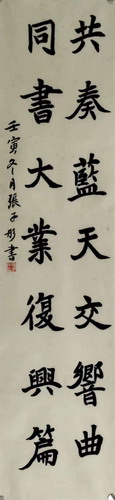 共奏藍天交響曲
同書大業復興篇
壬寅冬月張子彤書